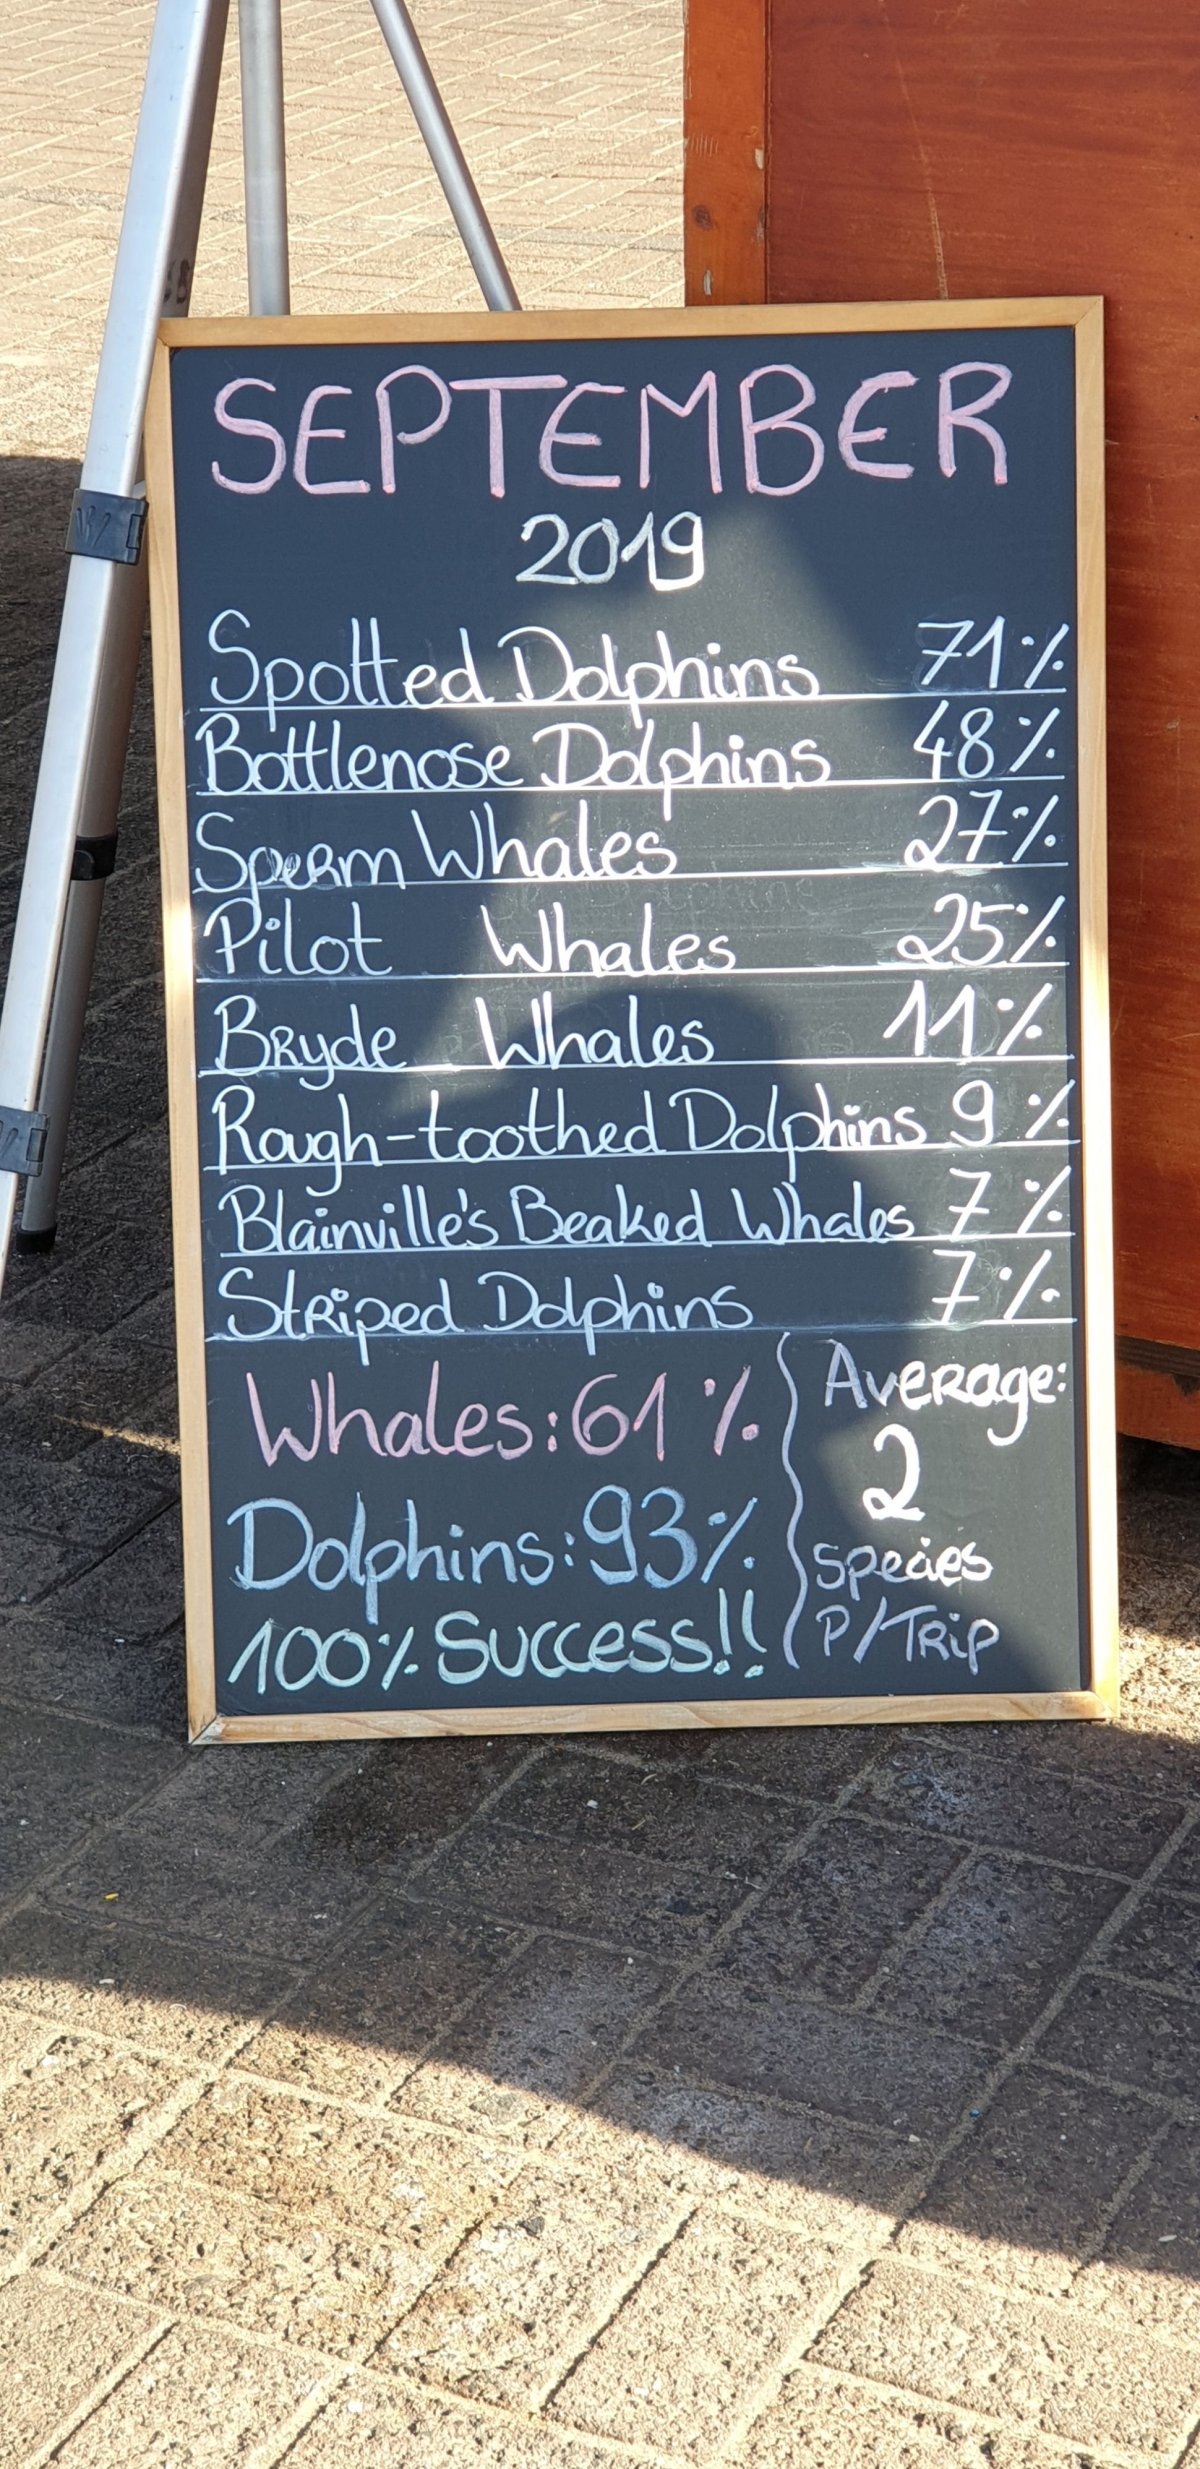 SEPTEMBER
2019
Spotted Dolphins 71%
Bottlenose Dolphins 48%
Sperm Whales 27%
Pilot Whales 25%
Bryde Whales 11%
Rough-toothed Dolphins 9%
Blainville's Beaked Whales 7%
Striped Dolphins 7%
Whales: 61%
Dolphins: 93%
100% Success!!
Average:
2
species
P/Trip